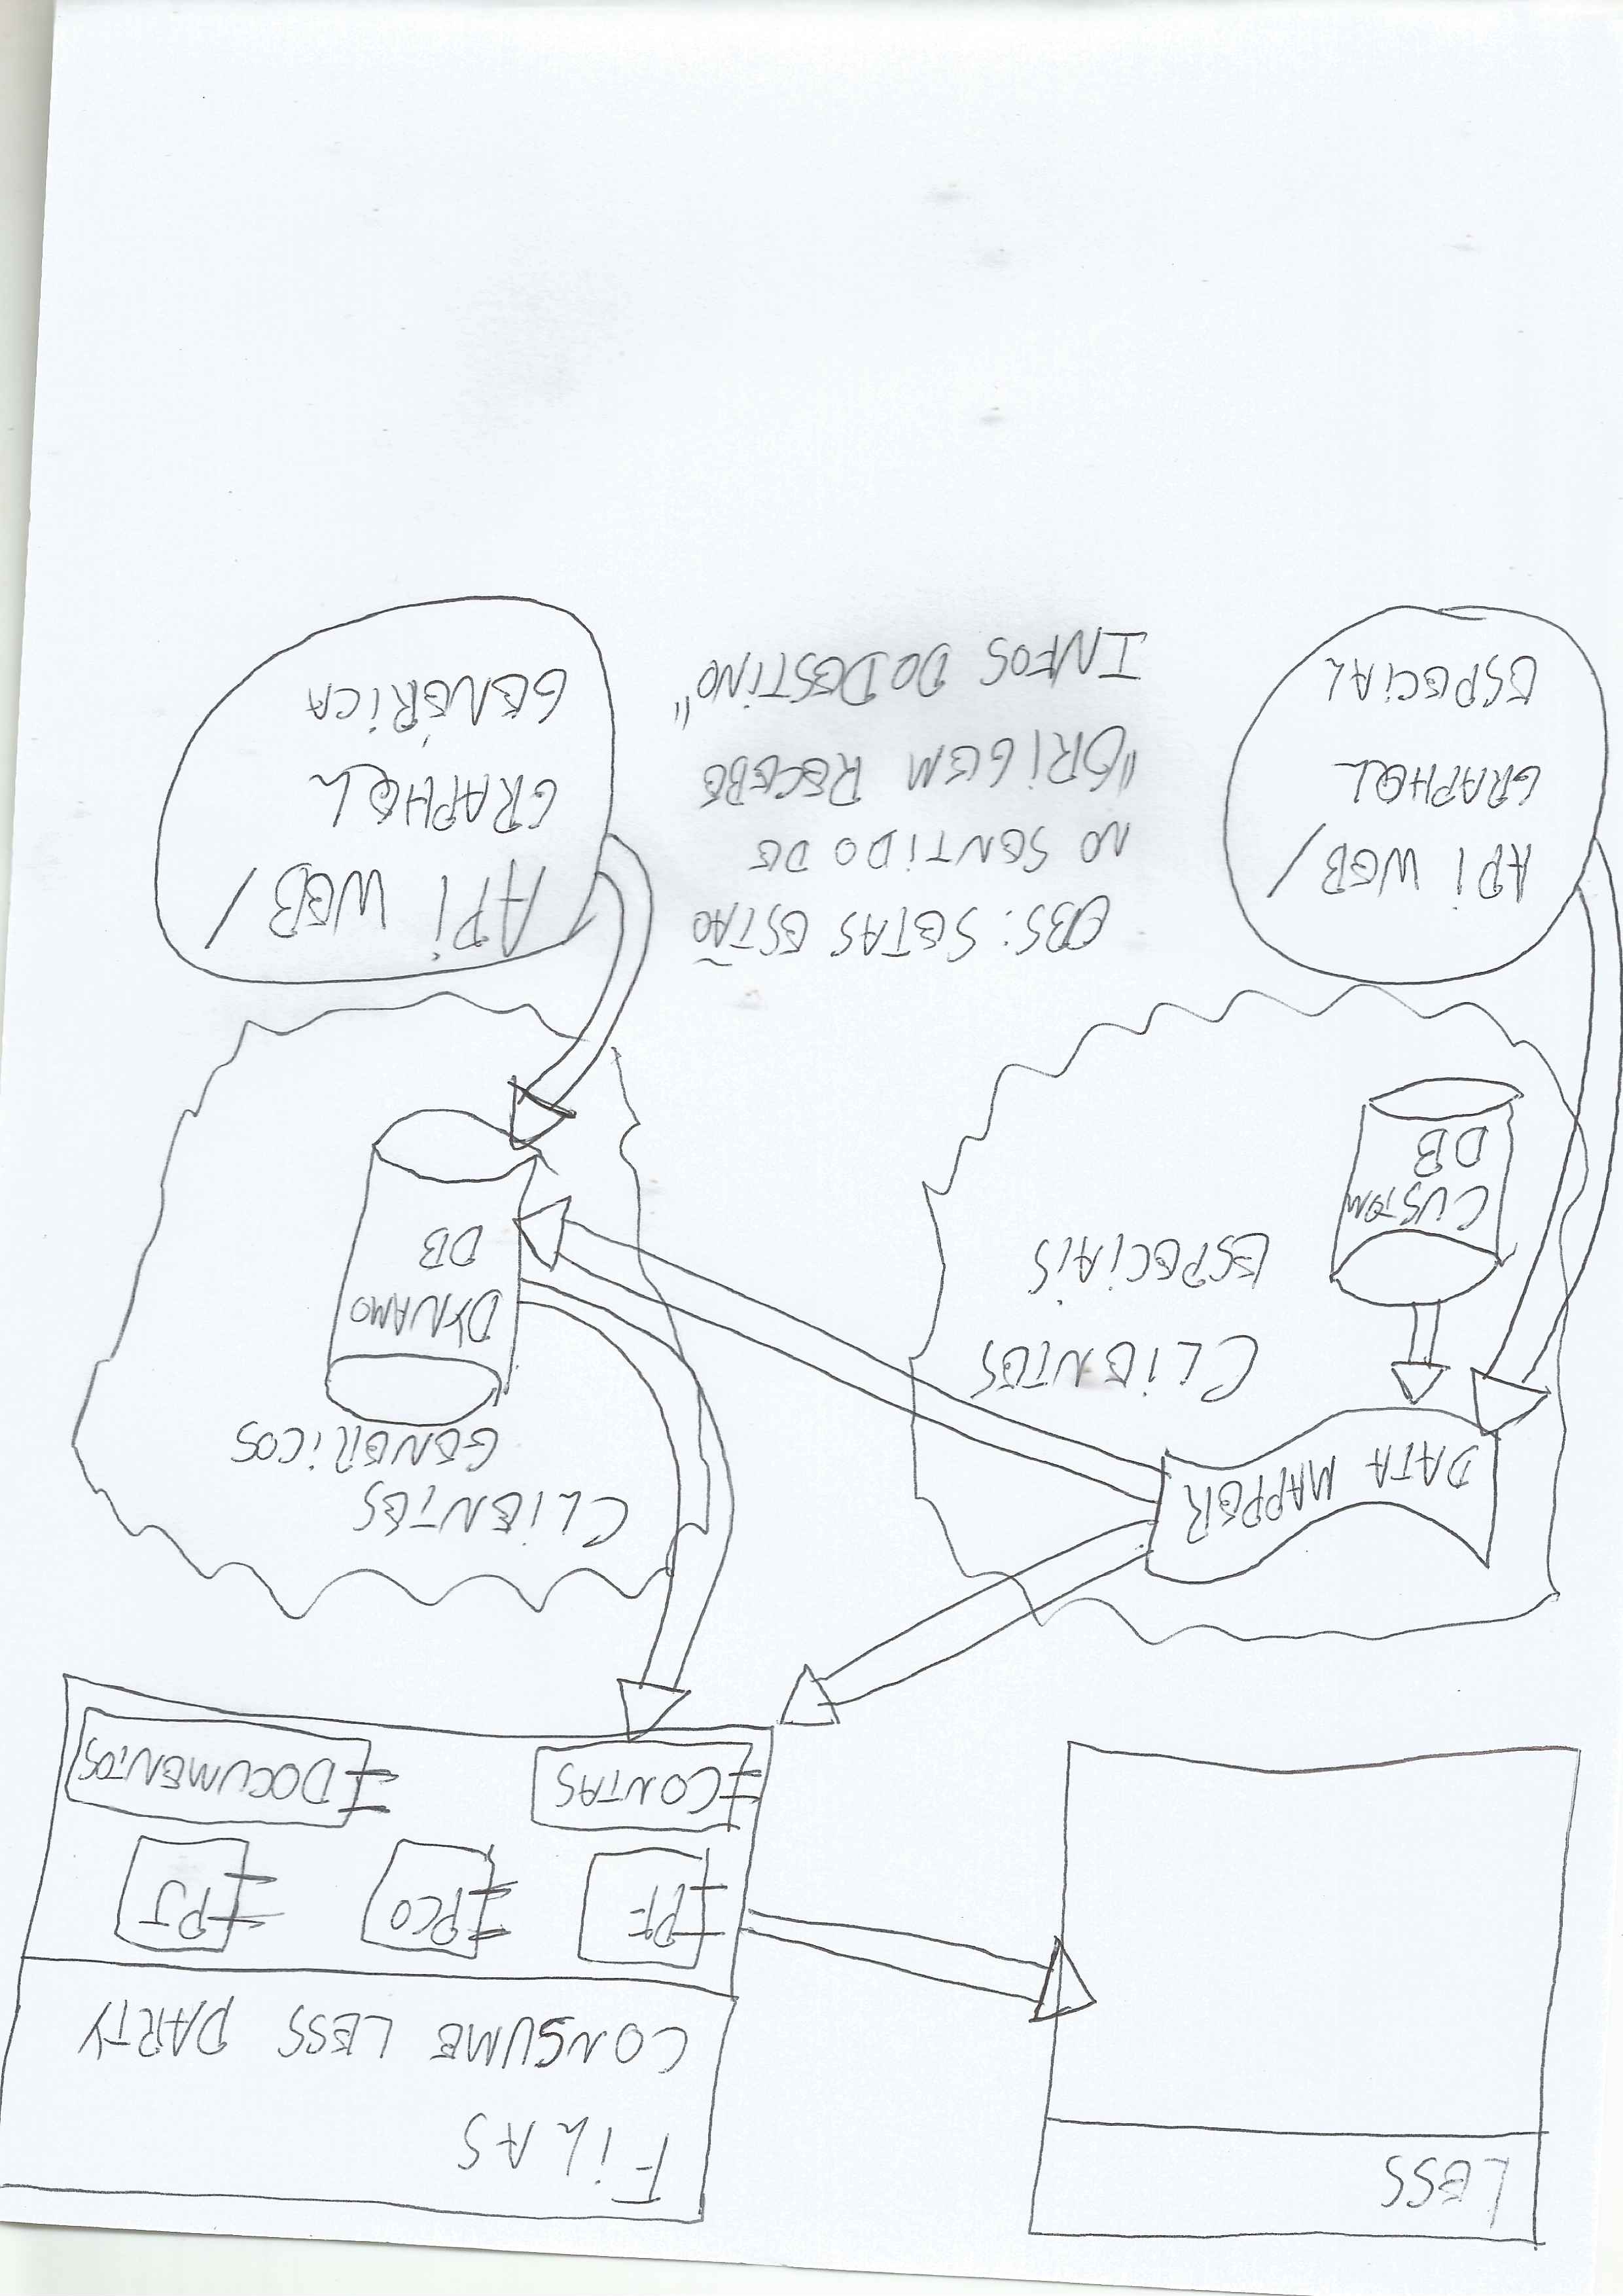 LESS
FILAS
CONSUME LESS PARTY
PF
PCO
PJ
CONTAS
DOCUMENTOS
DATA MAPPER
CLIENTES
ESPECIAIS
CUSTOM
DB
CLIENTES
GENERICOS
DYNAMO
DB
API WEB/
GRAPHQL
ESPECIAL
OBS: SETAS ESTÃO
NO SENTIDO DE
"ORIGEM RECEBE
INFOS DO DESTINO"
API WEB/
GRAPHQL
GENÉRICA